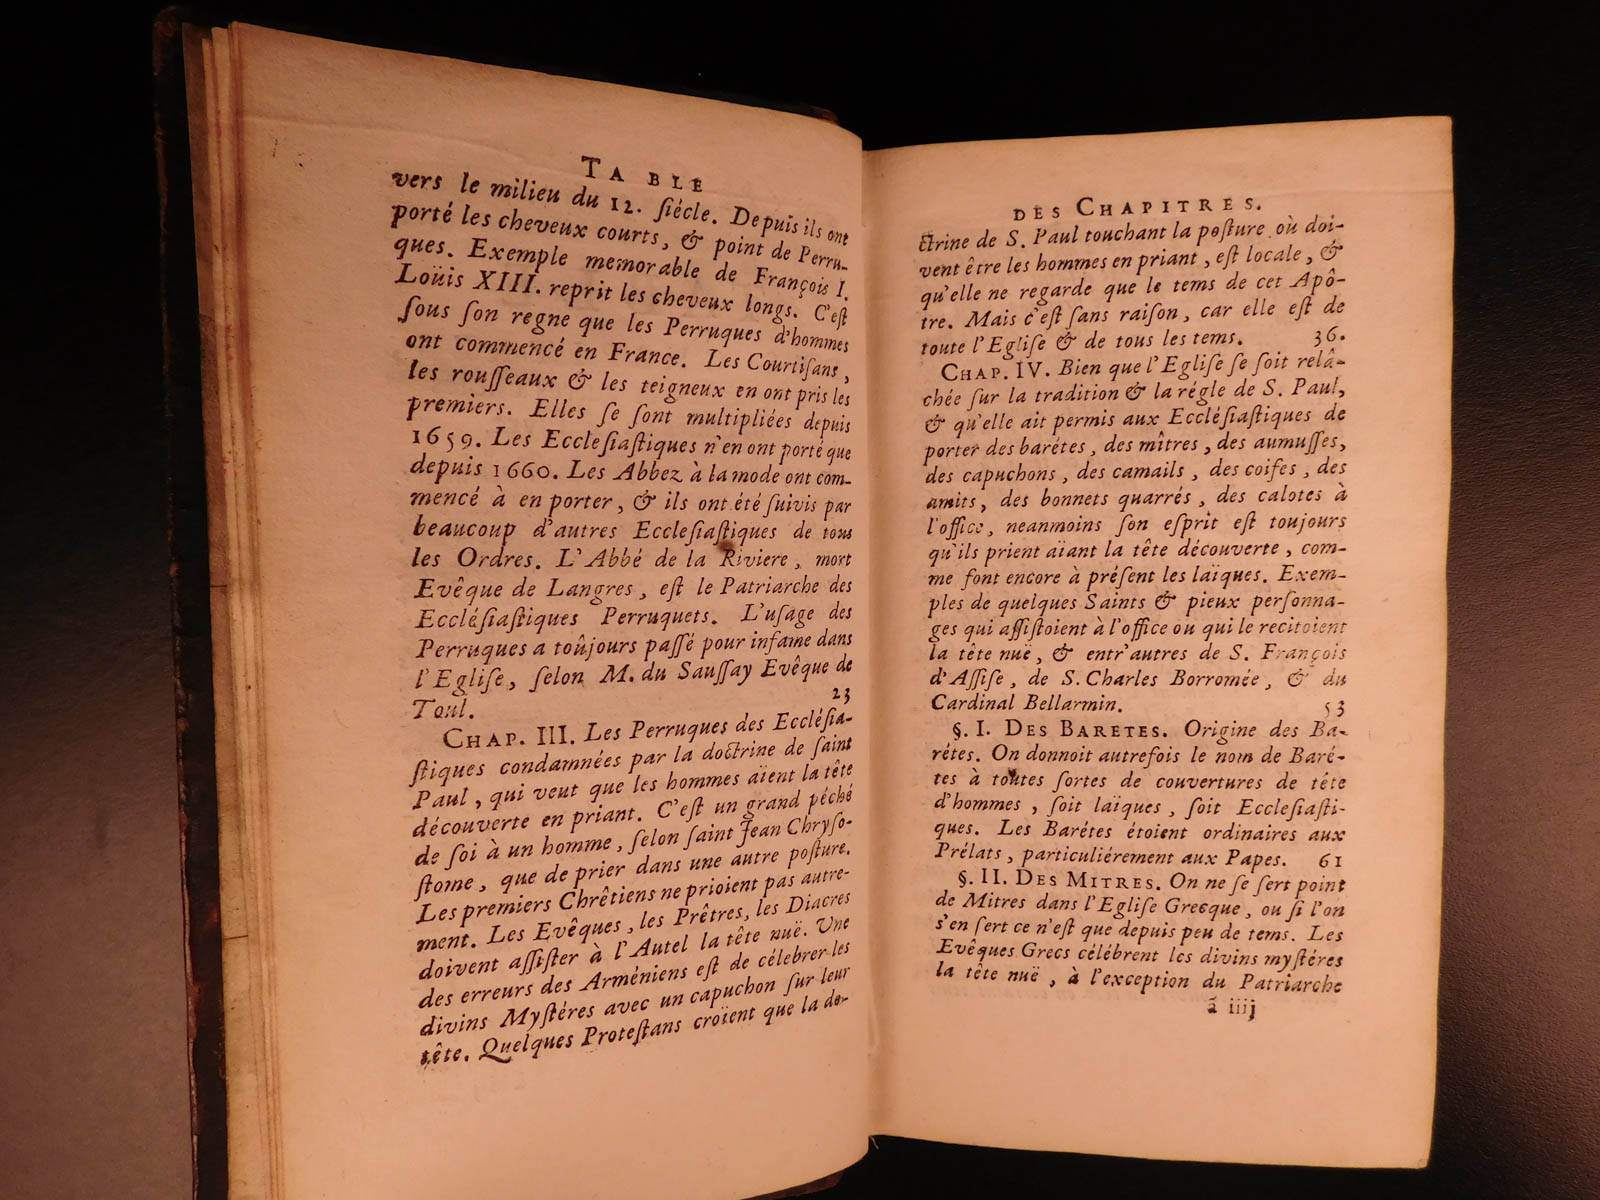 TABLE
vers le milieu du 12. ſiécle. Depuis ils ont
porté les cheveux courts, & point de Perru-
ques. Exemple memorable de François I.
Loüis XIII. reprit les cheveux longs. C'eſt
ſous ſon regne que les Perruques d'hommes
ont commencé en France. Les Courtiſans,
les rouſſeaux & les teigneux en ont pris les
premiers. Elles ſe ſont multipliées depuis
1659. Les Eccleſiaſtiques n'en ont porté que
depuis 1660. Les Abbez à la mode ont com-
mencé à en porter, & ils ont été ſuivis par
beaucoup d'autres Eccleſiaſtiques de tous
les Ordres. L'Abbé de la Riviere, mort
Evêque de Langres, eſt le Patriarche des
Eccléſiaſtiques Perruquets. L'uſage des
Perruques a toûjours paſſé pour infame dans
l'Egliſe, ſelon M. du Sauſſay Evêque de
Toul. 23
CHAP. III. Les Perruques des Eccléſia-
ſtiques condamnées par la doctrine de ſaint
Paul, qui veut que les hommes aïent la tête
découverte en priant. C'eſt un grand péché
de ſoi à un homme, ſelon ſaint Jean Chryſo-
ſtome, que de prier dans une autre poſture.
Les premiers Chrêtiens ne prioient pas autre-
ment. Les Evêques, les Prêtres, les Diacres
doivent aſſiſter à l'Autel la tête nuë. Une
des erreurs des Arméniens eſt de célebrer les
divins Myſtéres avec un capuchon ſur leur
tête. Quelques Proteſtans croïent que la do-
DES CHAPITRES.
ctrine de S. Paul touchant la poſture où doi-
vent être les hommes en priant, eſt locale, &
qu'elle ne regarde que le tems de cet Apô-
tre. Mais c'eſt ſans raiſon, car elle eſt de
toute l'Egliſe & de tous les tems. 36.
CHAP. IV. Bien que l'Egliſe ſe ſoit relâ-
chée ſur la tradition & la régle de S. Paul,
& qu'elle ait permis aux Eccléſiaſtiques de
porter des barétes, des mîtres, des aumuſſes,
des capuchons, des camails, des coifes, des
amits, des bonnets quarrés, des calotes à
l'office, neanmoins ſon eſprit eſt toujours
qu'ils prient aïant la tête découverte, com-
me font encore à préſent les laïques. Exem-
ples de quelques Saints & pieux perſonna-
ges qui aſſiſtoient à l'office ou qui le recitoient
la tête nuë, & entr'autres de S. François
d'Aſſiſe, de S. Charles Borromée, & du
Cardinal Bellarmin. 53
§. I. DES BARETES. Origine des Ba-
rétes. On donnoit autrefois le nom de Baré-
tes à toutes ſortes de couvertures de tête
d'hommes, ſoit laïques, ſoit Eccleſiaſti-
ques. Les Barétes étoient ordinaires aux
Prélats, particuliérement aux Papes. 61
§. II. DES MITRES. On ne ſe ſert point
de Mitres dans l'Egliſe Grecque, ou ſi l'on
s'en ſert ce n'eſt que depuis peu de tems. Les
Evêques Grecs célébrent les divins myſtéres
la tête nuë, à l'exception du Patriarche
ã iiij